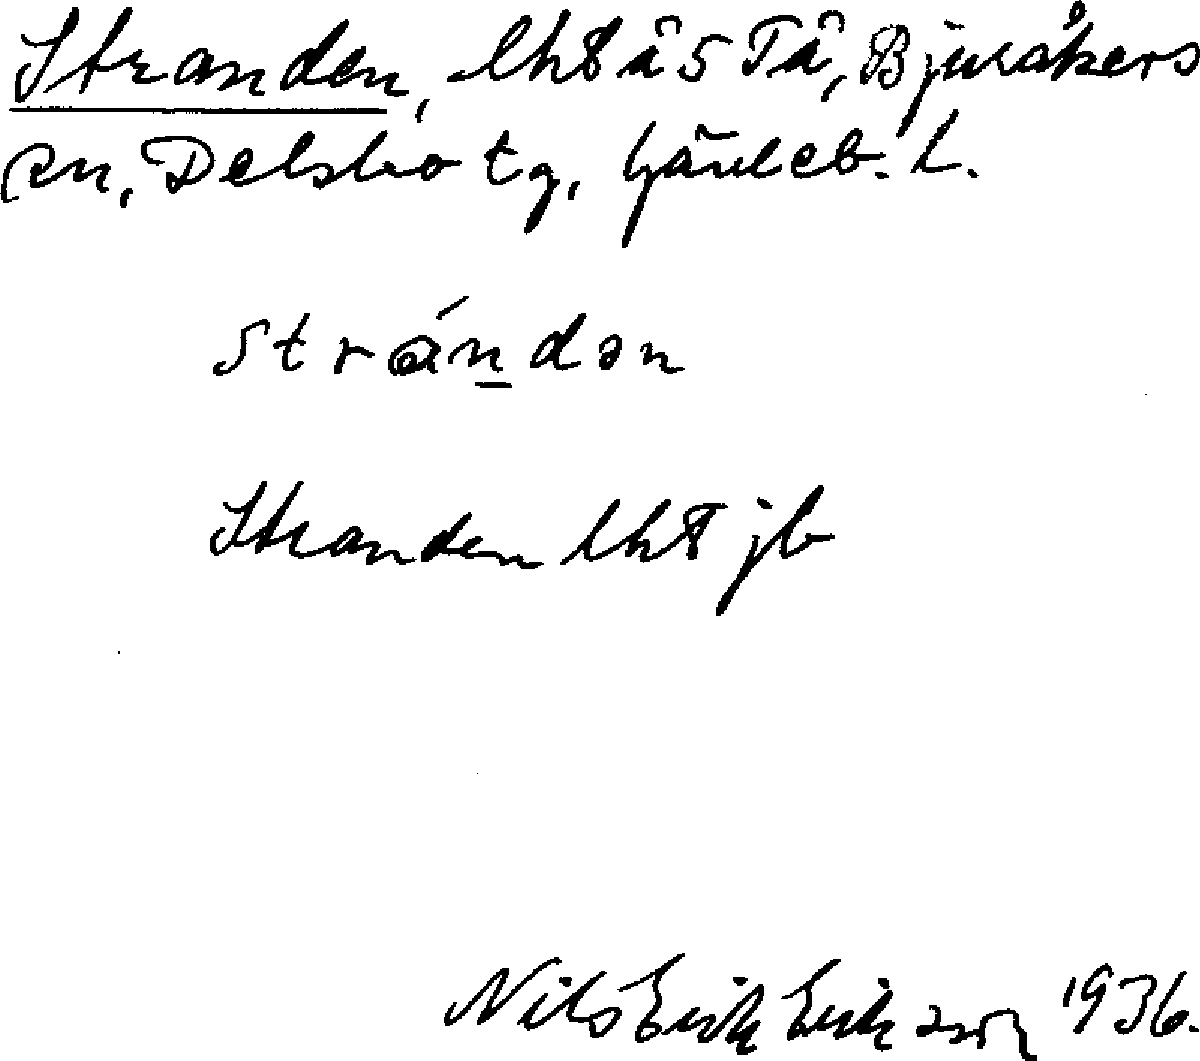 Stranden, lht å 5 Tå, Bjuråkers
sn, Delsbo tg, Gävleb. L.
strándən
Stranden lht jb
Nils Erik Eriksson 1936.